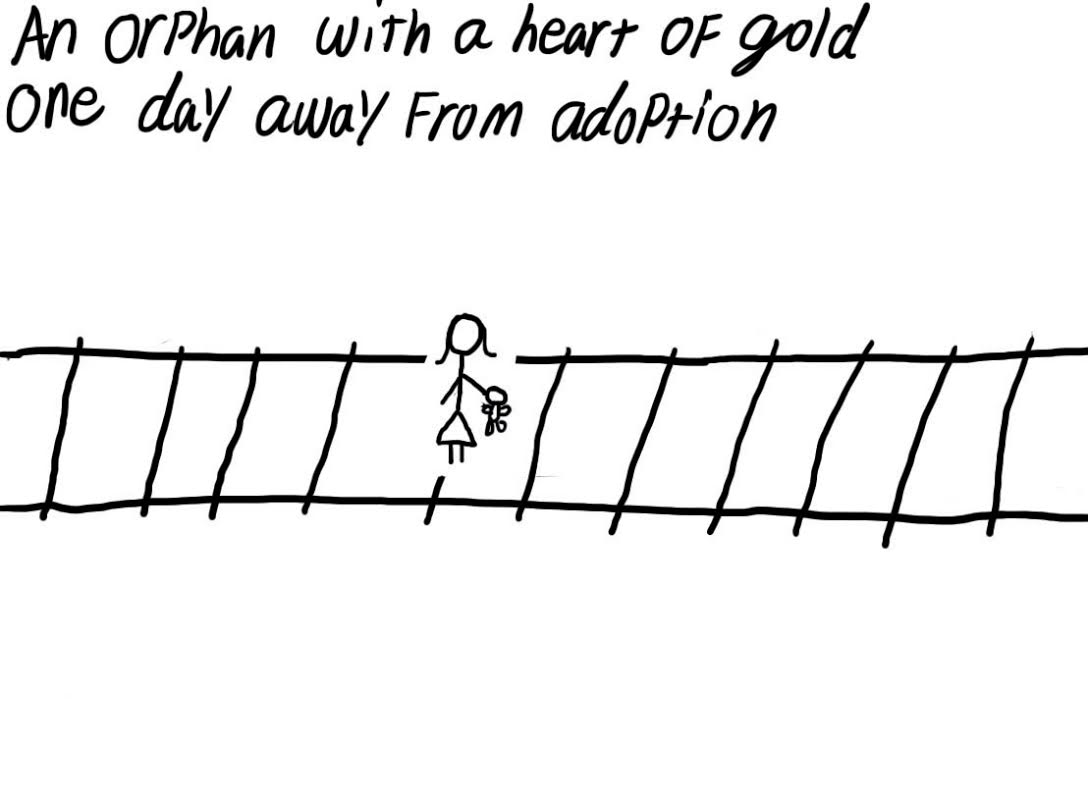 An orphan with a heart of gold
one day away from adoption